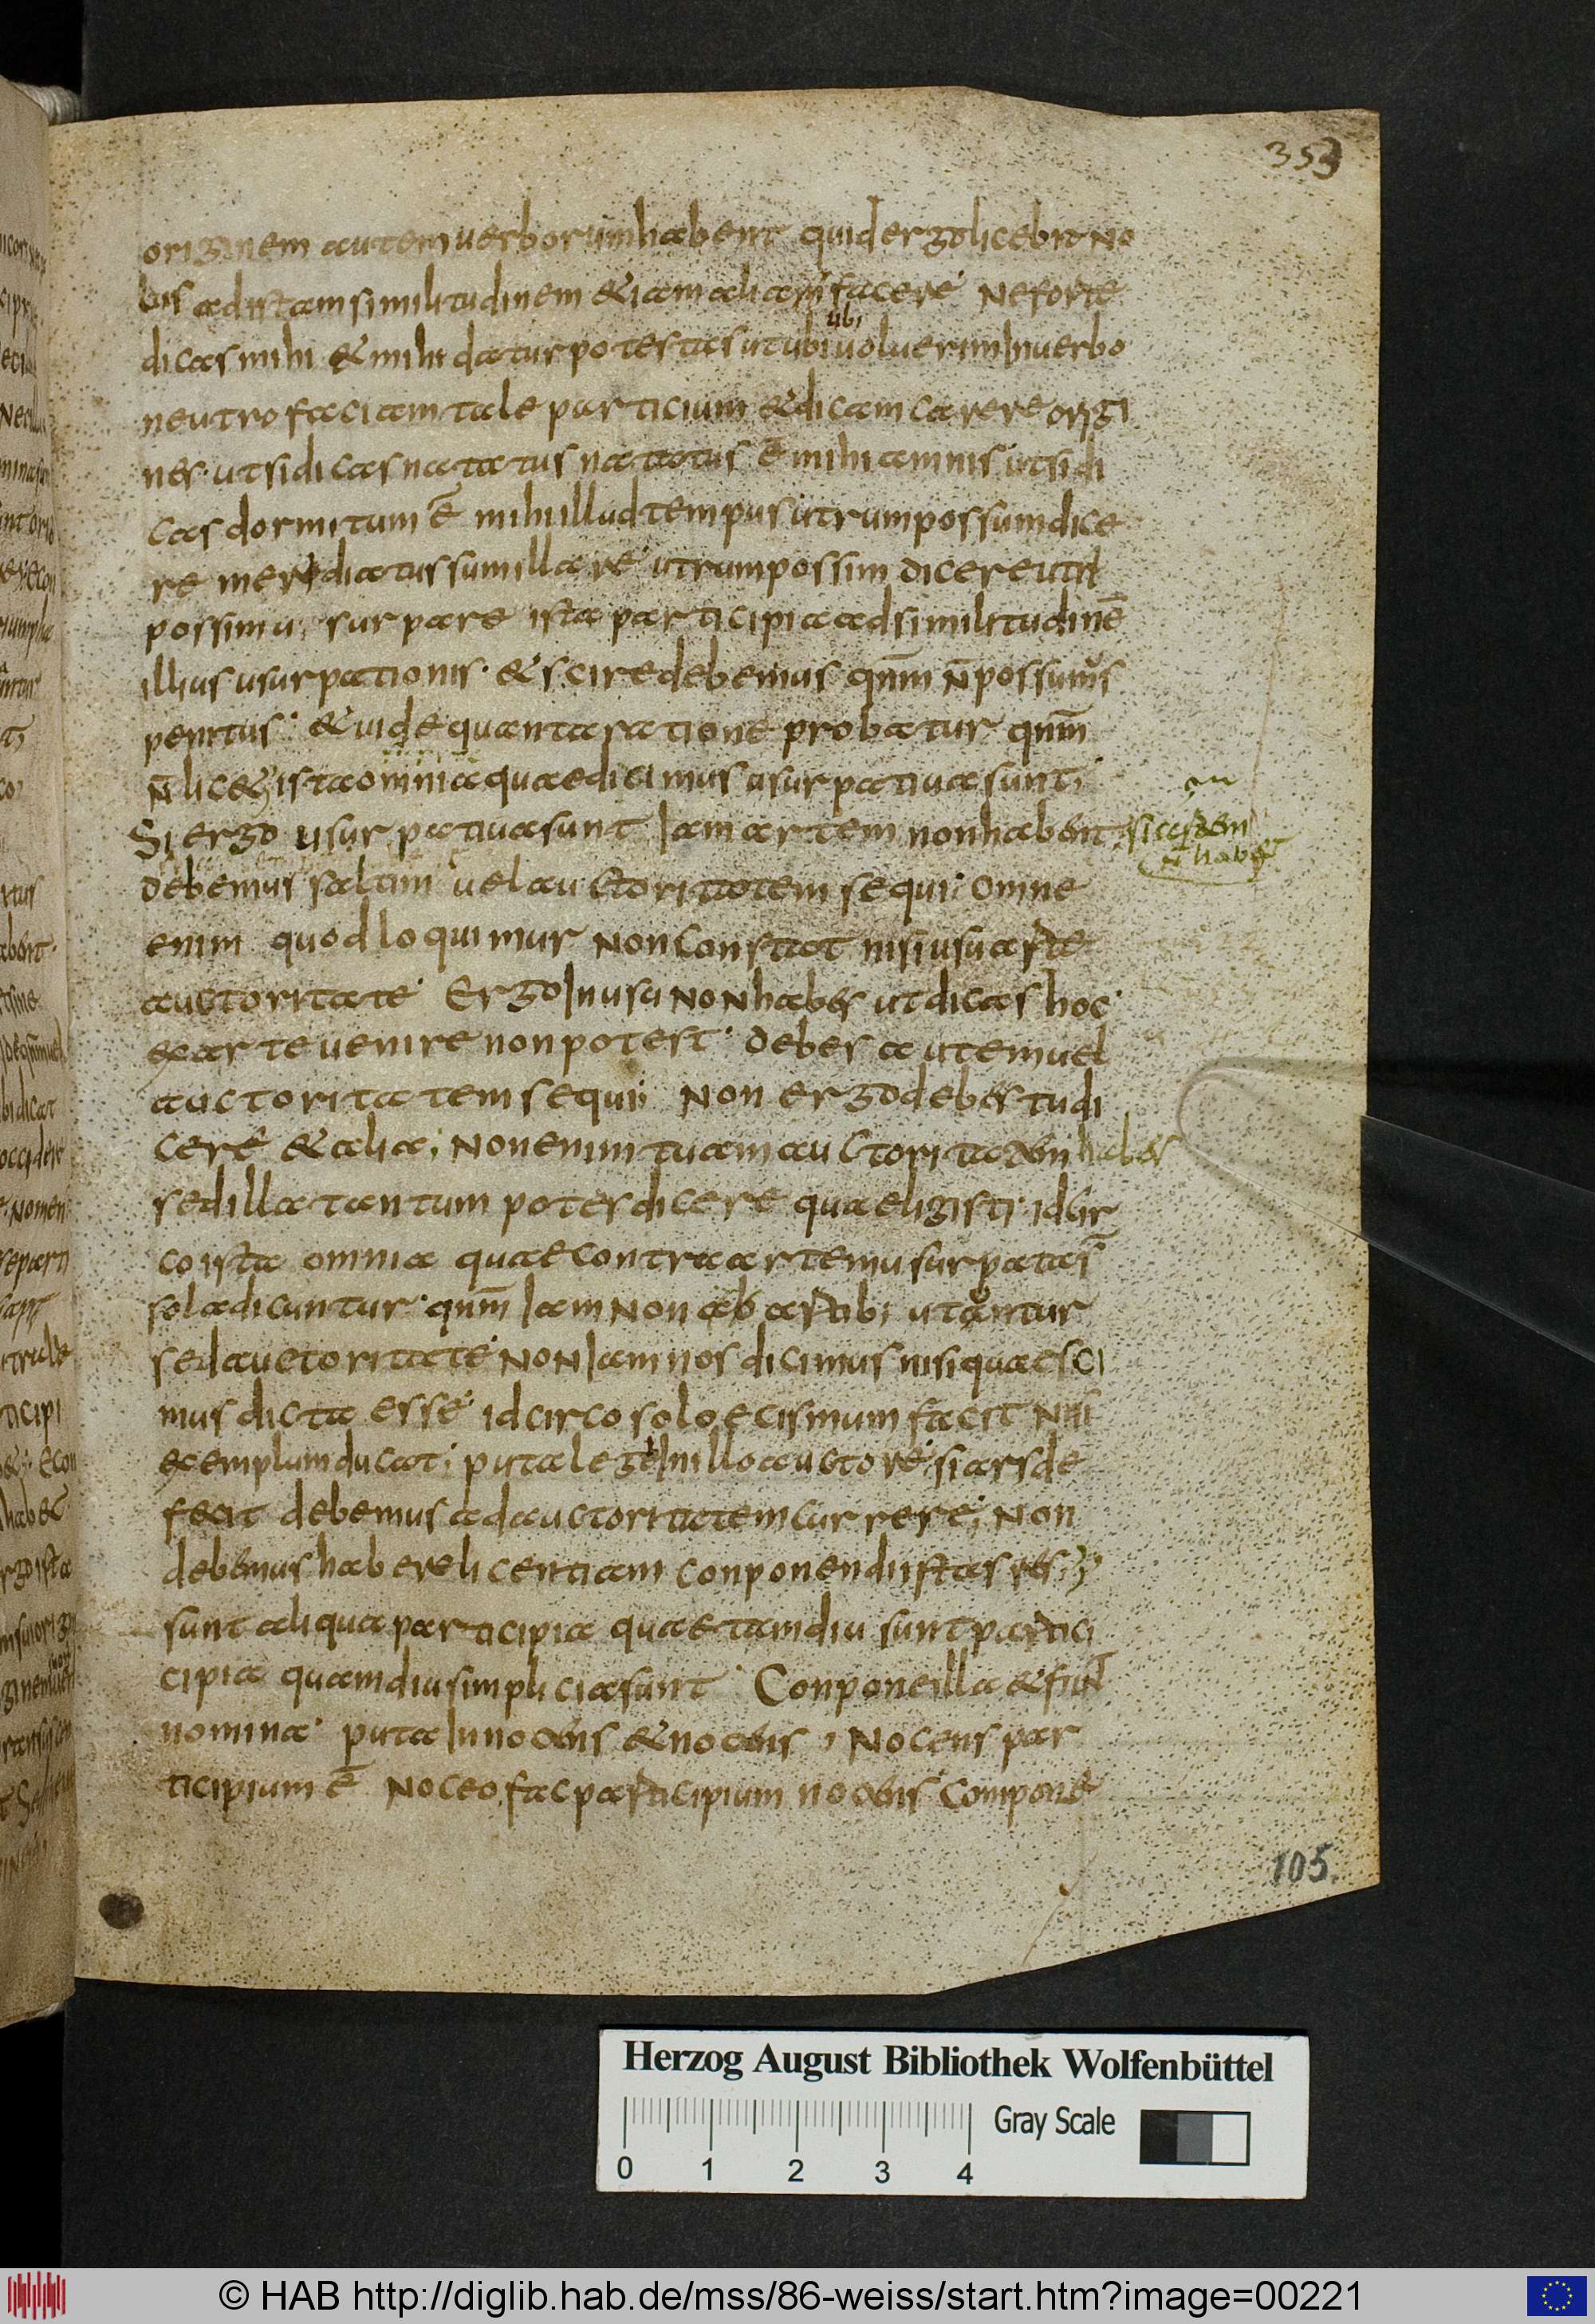 353
originem autem uerborum habent quid ergo licebit no
bis ad istam similitudinem & iam aliam facere Ne forte
ubi
dicas mihi & mihi datur potestas ut ubi uoluerim In uerbo
neutro faciam tale particium & dicam carere origi
nes. ut si dicas natatus natatus ē mihi amnis ut si di
cas dormitum ē mihi illud tempus utrum possum dice
re meridiatus sum illa re utrum possim dicere ut
possim usurpare ista participia ad similitudinē
illius usurpationis. & scire debemus qnm̄ n̄ possumus
penitus. & uide quanta ratione probatur qnm̄
n̄ lic& ista omnia quae dicimus usurpatiua sunt;
Si ergo usurpatiua sunt Iam artem non habent. si artem
n̄ hab&
debemus saltim uel auctoritatem sequi; Omne
enim quod loquimur Non constat nisi usu arte
auctoritate Ergo In usu NoN habes ut dicas hoc
ex arte uenire non potest. debes autem uel
auctoritatem sequi; Non ergo debes tu di
cere & alia; Non enim tuam auctoritatem habes
sed illa tantum potes dicere quae ligisti. idcir
co ista omnia quae contra artem usurpata s̄
sola dicuntur. qnm̄ Iam Non ab arte ibi utantur
sed auctoritate NoN Iam nos dicimus nisi quae sci
mus dicta esse idcirco soloecismum facit Nisi
exemplum ducat; puta lege In illo auctore; si ars de
fecit debemus ad auctoritatem currere; Non
debemus habere licentiam conponendi istas res;
sunt aliqua participia quae tamdiu sunt partici
cipia quamdiu simplicia sunt. Conpone illa & fiuNT
nomina. puta Innocens & nocens, Nocens par
ticipium ē Noceo, fac participium nocens. Compone
105.
Herzog August Bibliothek Wolfenbüttel
Gray Scale
0 1 2 3 4
© HAB http://diglib.hab.de/mss/86-weiss/start.htm?image=00221